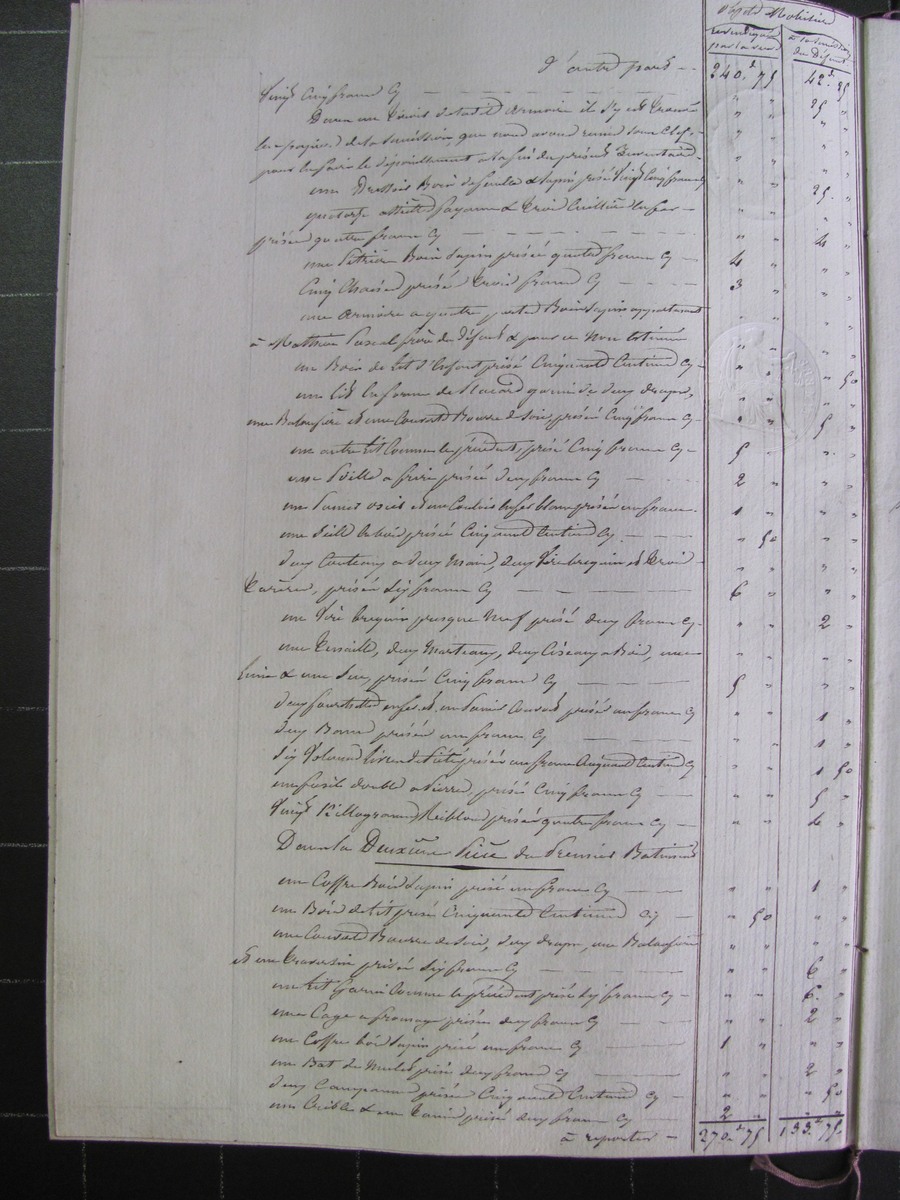 Objets Mobiliers
d'autre part — 240. 75 42. 25
Vingt Cinq francs Cy — 25 "
Dans un tiroir de ladite Armoire il s'y est trouvé
les papiers de la succession, que nous avons remis sous Clef,
pour en faire le dépouillement à la fin du présent Inventaire
une Dressoir Bois de feuille & Sapin prisé Vingt Cinq francs Cy 25. "
quatorze assiettes fayance & trois Cuillères en fer —
prisés quatre francs Cy — 4 "
une Pétrière Bois Sapin prisée quatre francs Cy — 4 "
Cinq Chaises prisées trois francs Cy — 3 "
une Armoire à quatre portes Bois Sapin appartenant
à Mathieu Pascal frère du défunt & pour ce Non Estimée
un Bois de Lit d'Enfant prisé Cinquante Centimes Cy — " 50
un lit en forme de Placard garni de deux draps,
une Balassière et une Couverte Bourre de Soie, prisés Cinq francs Cy — 5 "
un autre Lit Comme le précédent, prisé Cinq francs Cy — 5 "
une Poille à frire prisée deux francs Cy — 2 "
une Panier osier et un Couloir en fer blanc prisés un franc — 1 "
une Seille en bois prisée Cinquante Centimes Cy — " 50
deux Couteaux à deux Mains, deux Virebrequins et trois
tarières, prisés Six francs Cy — 6 "
un Virebrequin presque Neuf prisé deux francs Cy — 2 "
une tenaille, deux Marteaux, deux Ciseaux à Bois, une
lime & une Scie prisés Cinq francs Cy — 5 "
deux fourchettes en fer et un Panier Couvert prisés un franc Cy — 1 "
deux Bancs prisés un franc Cy — 1 "
prisés un franc Cinquante Centimes Cy 1 50
un fusil double à Pierre, prisé Cinq francs Cy — 5 "
Vingt Killogrammes prisés quatre francs Cy — 4 "
Dans la Deuxième Pièce du Premier Batiment
un Coffre Bois Sapin prisé un franc Cy — 1 "
un Bois de Lit prisé Cinquante Centimes Cy — " 50
une Couverte Bourre de Soie, deux draps, une Balassière
et une traversin prisés Six francs Cy — 6 "
un Lit Garni Comme le précédent prisé Six francs Cy — 6. "
une Cage à fromage prisée deux francs Cy — 2 "
un Coffre bois Sapin prisé un franc Cy — 1 "
un Bat de Mulet prisé deux francs Cy — 2 "
deux Campanes prisées Cinquante Centimes Cy — " 50
un Crible & un Tamis prisés deux francs Cy — 2 "
à reporter — 270. 75 133. 75.